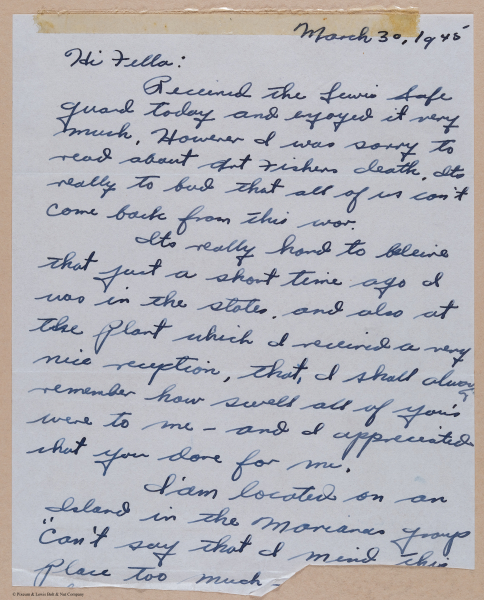 March 30, 1945
Hi Fella:
Received the Lewis Safe
guard today and enjoyed it very
much. However I was sorry to
read about Art Fishers death. Its
really to bad that all of us can't
come back from this war.
Its really hard to believe
that just a short time ago I
was in the states. and also at
the Plant which I received a very
nice reception, that, I shall always
remember how swell all of you's
were to me - and I appreciated
what you done for me.
I'am located on an
Island in the Marianas groups
"Can't say that I mind this
place too much -
© Preston & Lewis Bolt & Nut Company